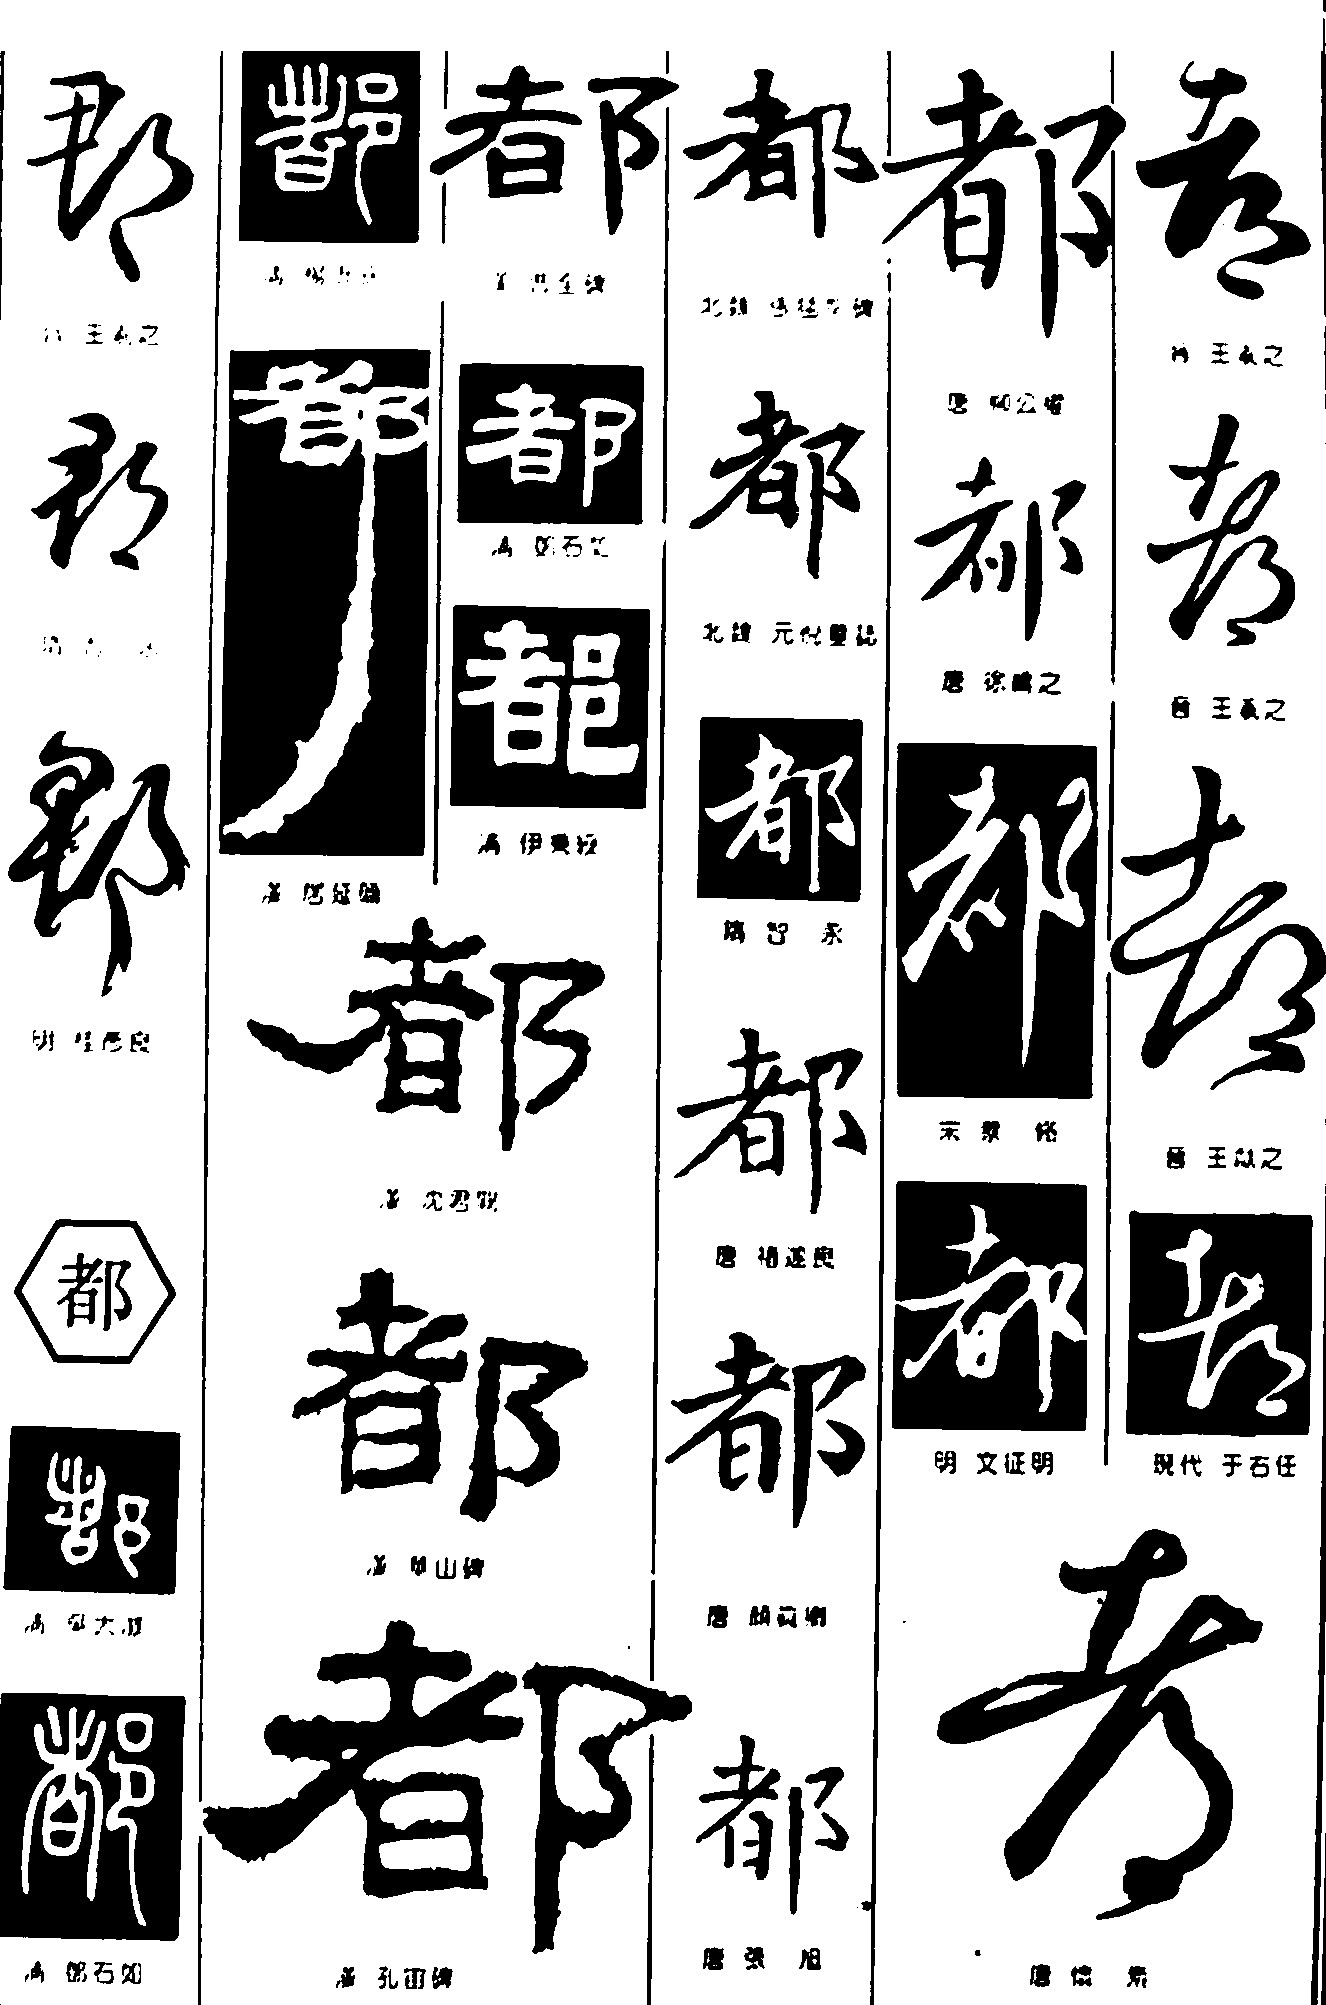 都
晉 王羲之
都
都
明
都
都
清
都
清 鄧石如
都
清 楊沂孫
都
漢 居延簡
都
漢
都
清 鄧石如
都
清 伊秉綬
都
漢 沈君闕
都
漢 華山碑
都
漢 孔宙碑
都
北魏 張猛龍碑
都
北魏
都
隋 智 永
都
唐 褚遂良
都
唐 顏真卿
都
唐 張 旭
都
唐 柳公權
都
唐 徐嶠之
都
宋 蔡
都
明 文征明
都
晉 王羲之
都
晉 王羲之
都
晉 王獻之
都
現代 于右任
都
唐 懷 素